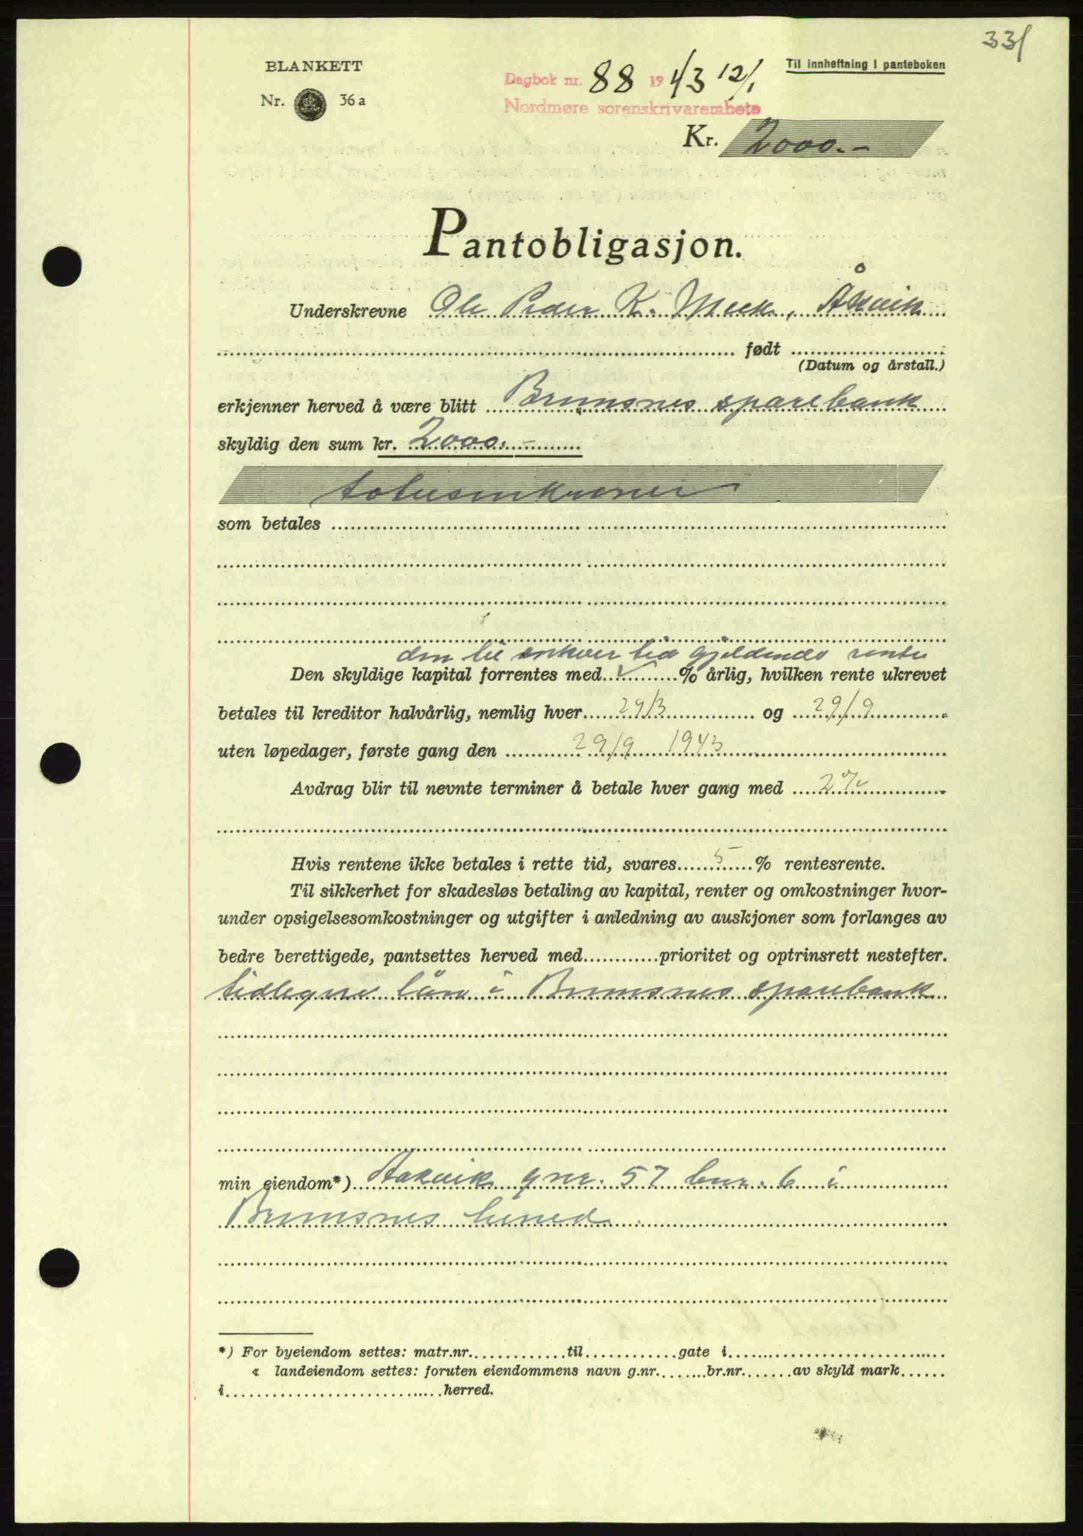 331
BLANKETT
Nr. 36a
Dagbok nr. 88 1943 12/1
Nordmøre sorenskrivarembete
Til innheftning i panteboken
Kr. 2000.-
Pantobligasjon.
Underskrevne Ole Peder K. Meek, Åsvik
født
(Datum og årstall.)
erkjenner herved å være blitt Bremsnes sparebank
skyldig den sum kr. 2000.-
totusenkroner
som betales
den til enhver tid gjeldende rente
Den skyldige kapital forrentes med % årlig, hvilken rente ukrevet
betales til kreditor halvårlig, nemlig hver 29/3 og 29/9
uten løpedager, første gang den 29/9 1943
Avdrag blir til nevnte terminer å betale hver gang med 2%
Hvis rentene ikke betales i rette tid, svares 5 % rentesrente.
Til sikkerhet for skadesløs betaling av kapital, renter og omkostninger hvor-
under opsigelsesomkostninger og utgifter i anledning av auskjoner som forlanges av
bedre berettigede, pantsettes herved med prioritet og optrinsrett nestefter.
tidlegere lån i Bremsnes sparebank
min eiendom*) gnr. 57 bnr. 6 i
Bremsnes herred
*) For byeiendom settes: matr.nr. til gate i
« landeiendom settes: foruten eiendommens navn g.nr. br.nr. av skyld mark
i herred.